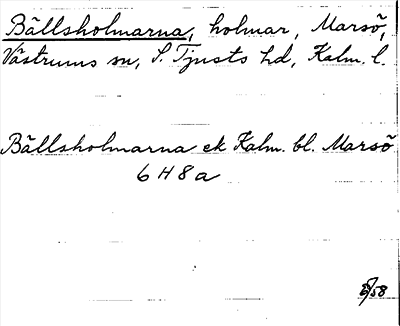 Bällsholmarna, holmar, Marsö,
Västrums sn, S. Tjusts hd, Kalm. l.
Bällsholmarna ek Kalm. bl. Marsö
6 H 8 a
/58